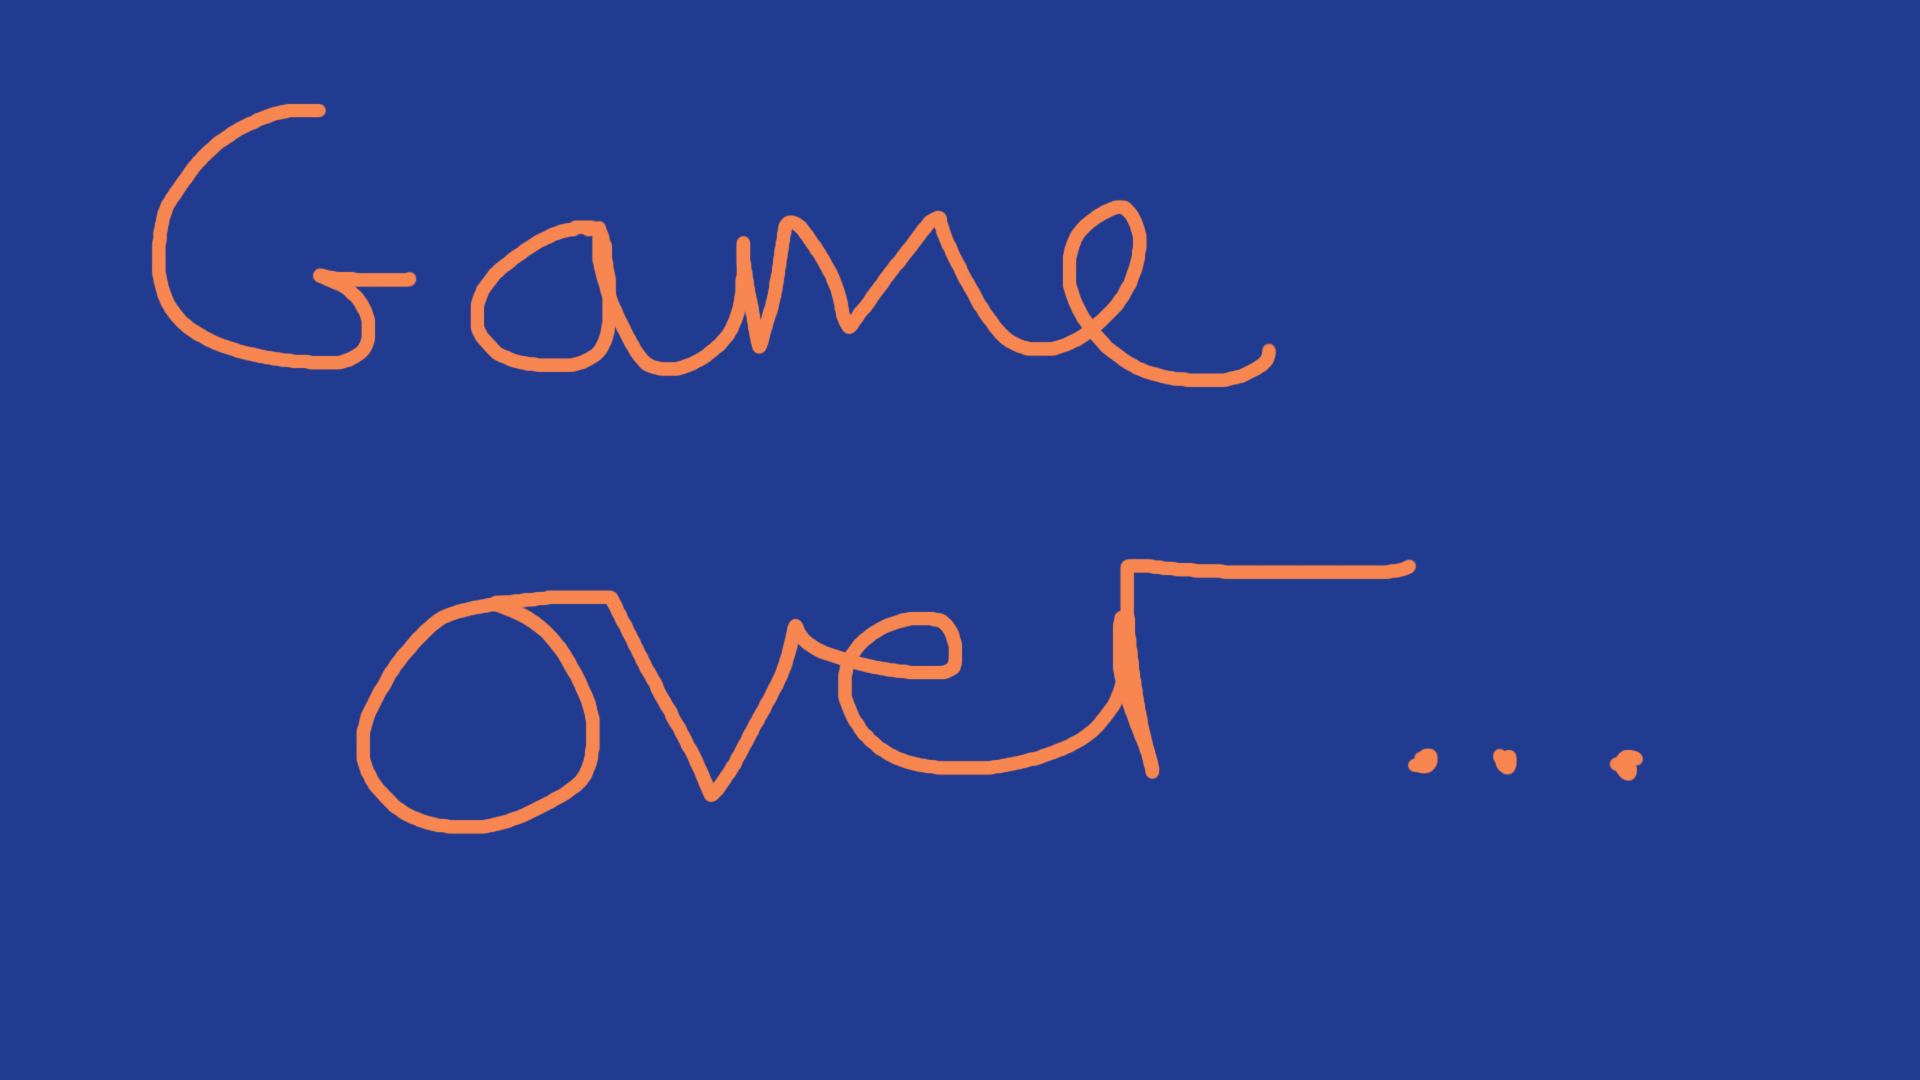 Game
over ...